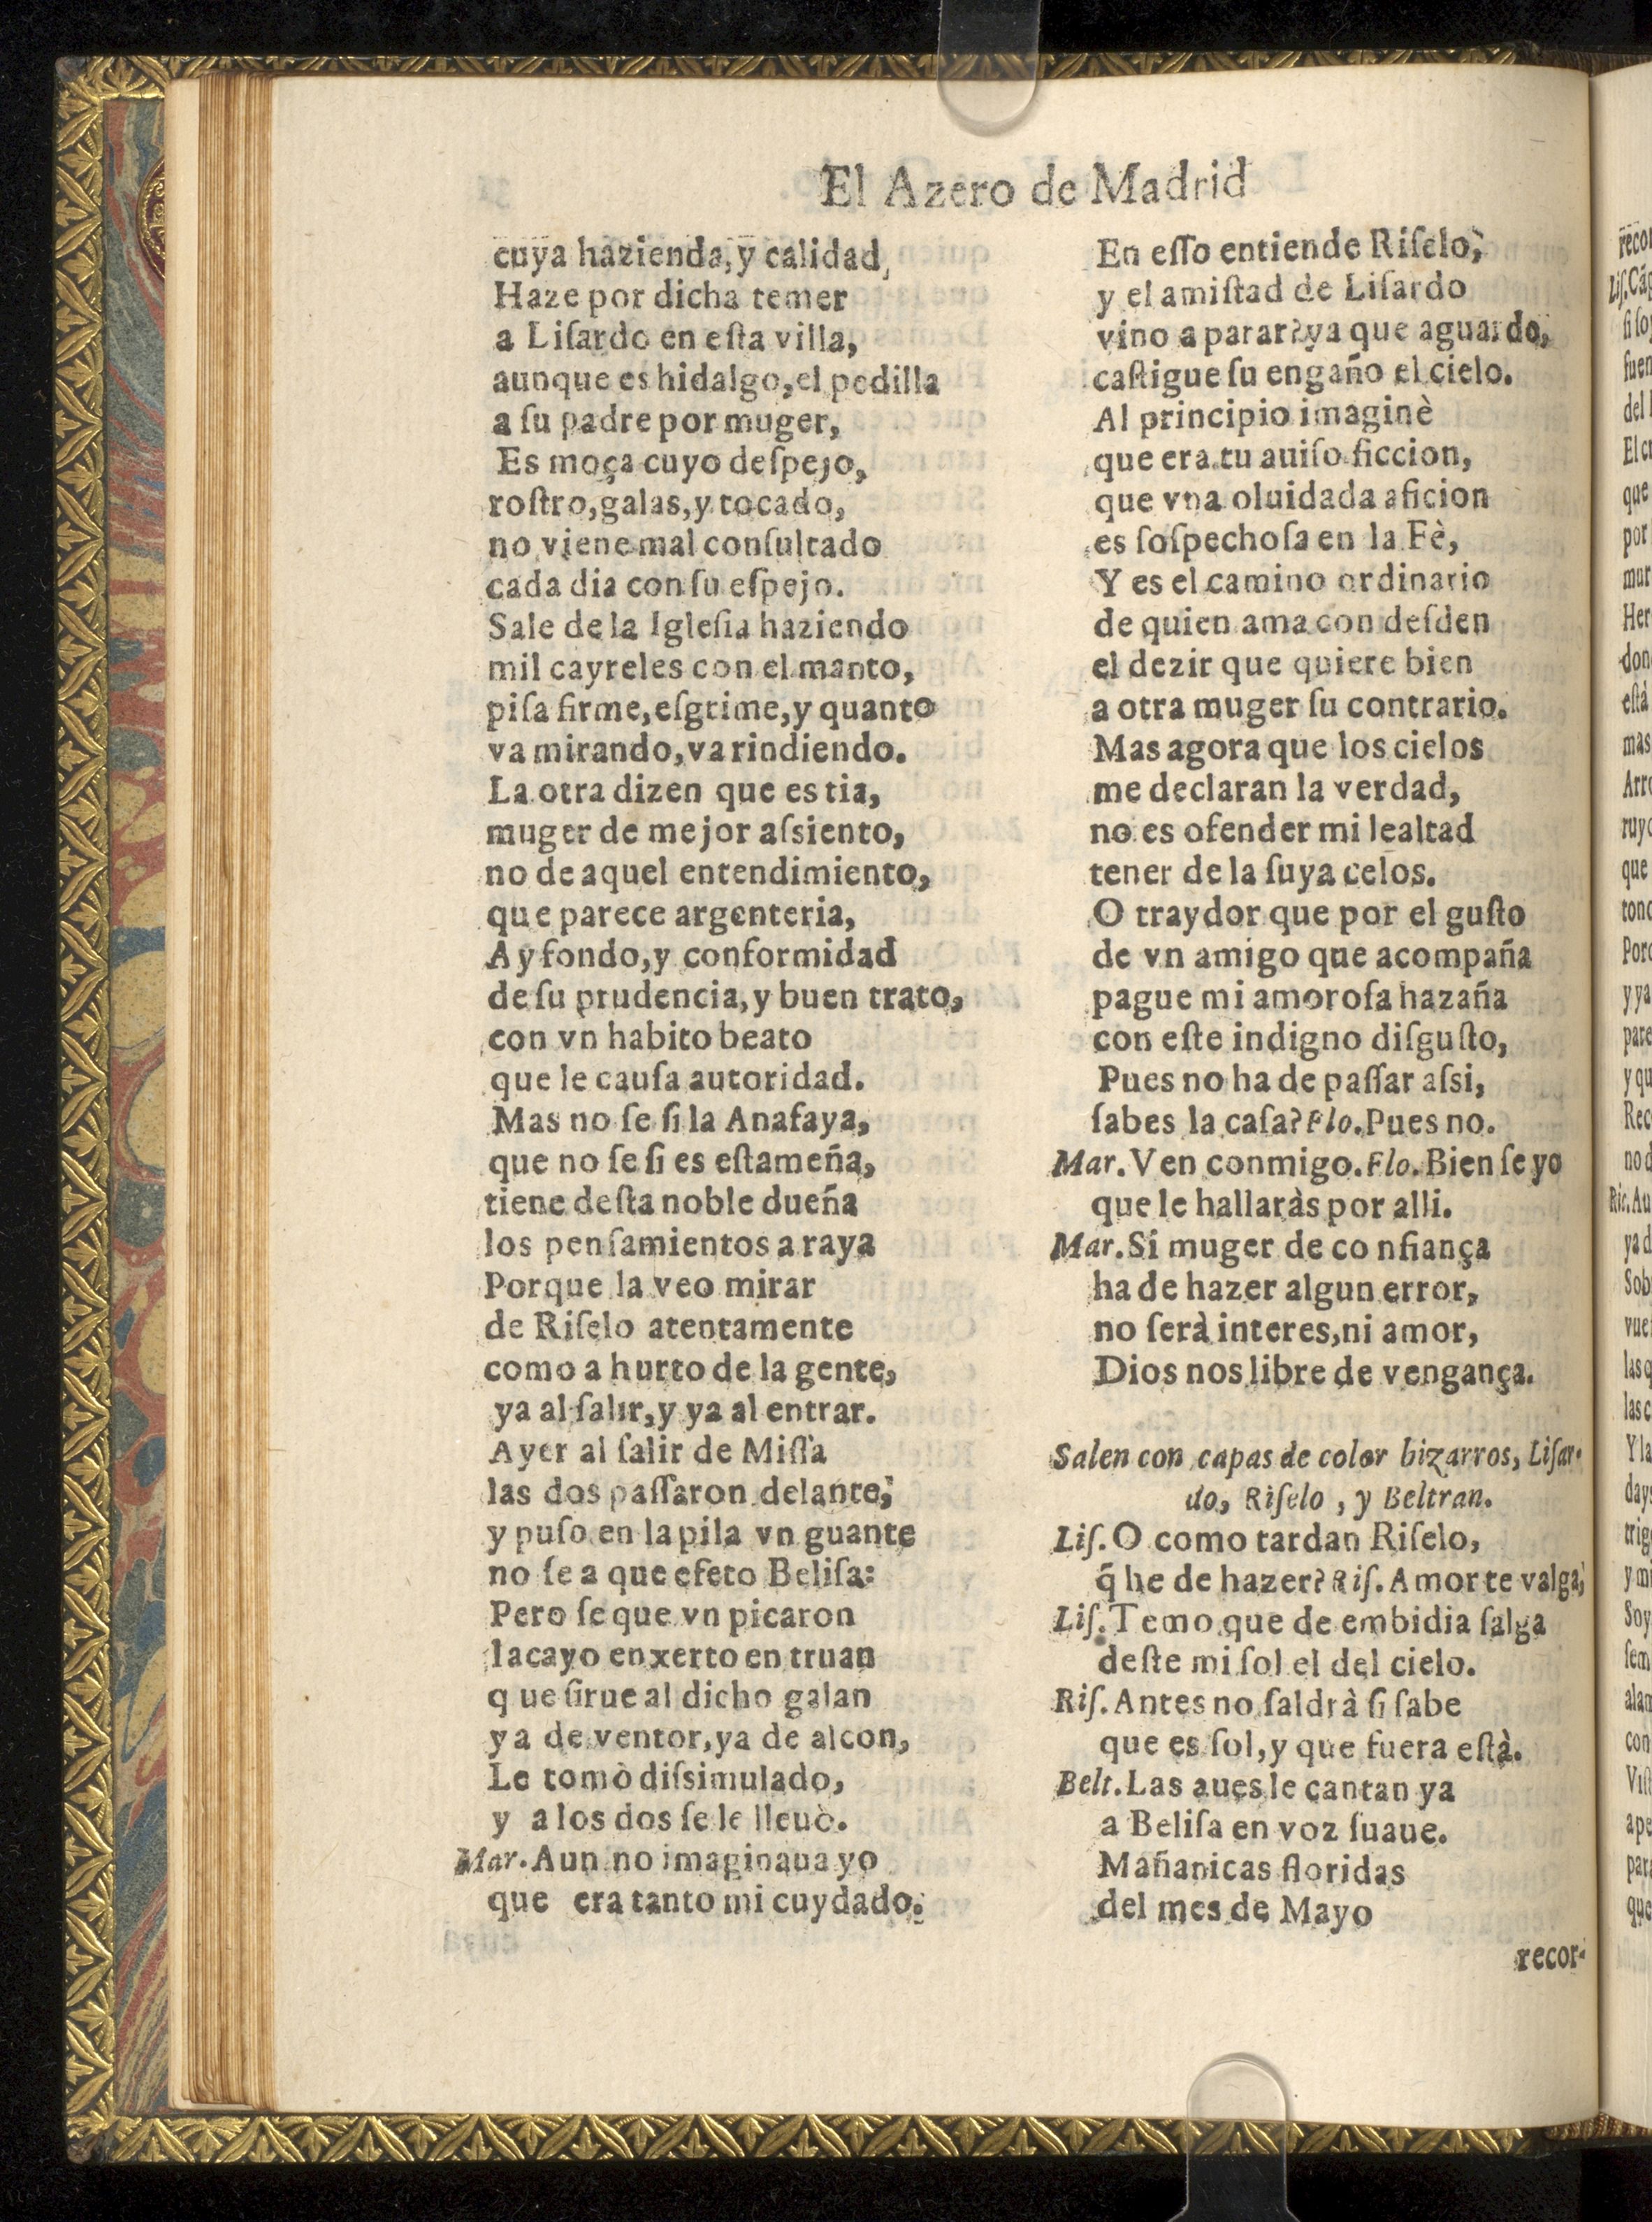 El Azero de Madrid
cuya hazienda, y calidad,
Haze por dicha temer
a Liſardo en eſta villa,
aunque es hidalgo, el pedilla
a ſu padre por muger,
Es moça cuyo deſpejo,
roſtro, galas, y tocado,
no viene mal conſultado
cada dia con ſu eſpejo.
Sale de la Igleſia haziendo
mil cayreles con el manto,
piſa firme, eſgrime, y quanto
va mirando, va rindiendo.
La otra dizen que es tia,
muger de mejor aſsiento,
no de aquel entendimiento,
que parece argenteria,
Ay fondo, y conformidad
de ſu prudencia, y buen trato,
con vn habito beato
que le cauſa autoridad.
Mas no ſe ſi la Anafaya,
que no ſe ſi es eſtameña,
tiene deſta noble dueña
los penſamientos a raya
Porque la veo mirar
de Riſelo atentamente
como a hurto de la gente,
ya al ſalir, y ya al entrar.
Ayer al ſalir de Miſſa
las dos paſſaron delante,
y puſo en la pila vn guante
no ſe a que efeto Beliſa:
Pero ſe que vn picaron
lacayo enxerto en truan
q ue ſirue al dicho galan
ya de ventor, ya de alcon,
Le tomò diſsimulado,
y a los dos ſe le lleuò.
Mar. Aun no imaginaua yo
que era tanto mi cuydado.
En eſſo entiende Riſelo,
y el amiſtad de Liſardo
vino a parar? ya que aguardo,
caſtigue ſu engaño el cielo.
Al principio imaginè
que era tu auiſo ficcion,
que vna oluidada aficion
es ſoſpechoſa en la Fè,
Y es el camino ordinario
de quien ama con deſden
el dezir que quiere bien
a otra muger ſu contrario.
Mas agora que los cielos
me declaran la verdad,
no es ofender mi lealtad
tener de la ſuya celos.
O traydor que por el guſto
de vn amigo que acompaña
pague mi amoroſa hazaña
con eſte indigno diſguſto,
Pues no ha de paſſar aſsi,
ſabes la caſa? Flo. Pues no.
Mar. Ven conmigo. Flo. Bien ſe yo
que le hallaràs por alli.
Mar. Si muger de co nfiança
ha de hazer algun error,
no ſerà interes, ni amor,
Dios nos libre de vengança.
Salen con capas de color bizarros, Liſar-
do, Riſelo, y Beltran.
Liſ. O como tardan Riſelo,
q̃ he de hazer? Riſ. Amor te valga,
Liſ. Temo que de embidia ſalga
deſte mi ſol el del cielo.
Riſ. Antes no ſaldrà ſi ſabe
que es ſol, y que fuera eſtà.
Belt. Las aues le cantan ya
a Beliſa en voz ſuaue.
Mañanicas floridas
del mes de Mayo
recor-